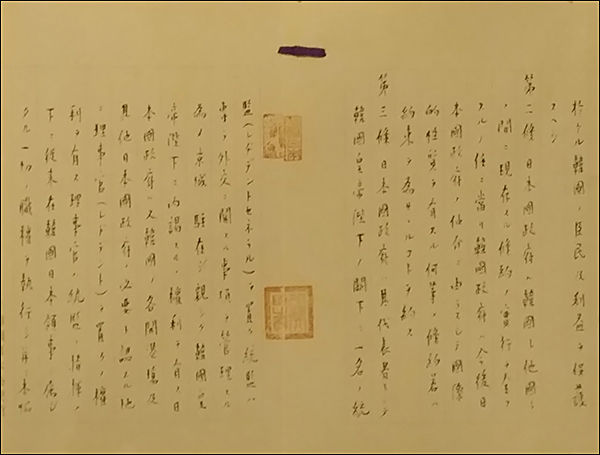 於ケル韓國ノ臣民及利益ヲ保護
スヘシ
第二條 日本國政府ハ韓國ト他國ト
ノ間ニ現存スル條約ノ實行ヲ全フ
スルノ任ニ當リ韓國政府ハ今後日
本國政府ノ仲介ニ由ラスシテ國際
的性質ヲ有スル何等ノ條約若ハ
約束ヲ為サヽルコトヲ約ス
第三條 日本國政府ハ其代表者トシテ
韓國皇帝陛下ノ闕下ニ一名ノ統
監(レヂデントゼネラル)ヲ置ク統監ハ
專ラ外交ニ關スル事項ヲ管理スル
為メ京城ニ駐在シ親シク韓國皇
帝陛下ニ內謁スルノ權利ヲ有ス日
本國政府ハ又韓國ノ各開港場及
其他日本國政府ノ必要ト認ムル地
ニ理事官(レヂデント)ヲ置クノ權
利ヲ有ス理事官ハ統監ノ指揮ノ
下ニ從來在韓國日本領事ニ屬シ
タル一切ノ職權ヲ執行シ並ニ本協